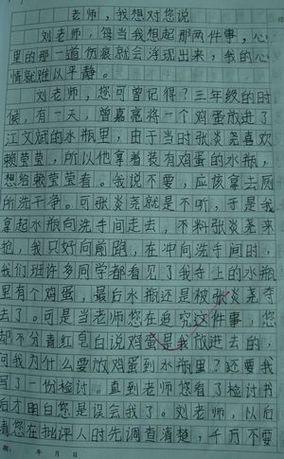 老师，我想对您说
刘老师，每当我想起那两件事，心
里的那一道伤痕就会浮现出来，我的心
情就难以平静。
刘老师，您可曾记得？三年级的时
候，有一天，曾嘉亮将一个鸡蛋放进了
江文斌的水瓶里，由于当时张炎尧喜欢
赖莹莹，所以他拿着装有鸡蛋的水瓶，
想给赖莹莹看。我说不要，应该拿去厕
所洗干净。可张炎尧就是不听，于是我
拿起水瓶向洗手间走去，不料张炎尧来
抢，我只好向前跑，在冲向洗手间时，
我们班许多同学都看见了我手上的水瓶
里有个鸡蛋，最后水瓶还是被张炎尧夺
去了。可是当老师您在追究这件事，您
却不分青红皂白说鸡蛋是我放进去的，
问我为什么要放鸡蛋到水瓶里？还要我
写了一份检讨。直到老师您看了检讨书
后才明白您是误会我了。刘老师，以后
请您在批评人时先调查清楚，千万不要
年 月 日